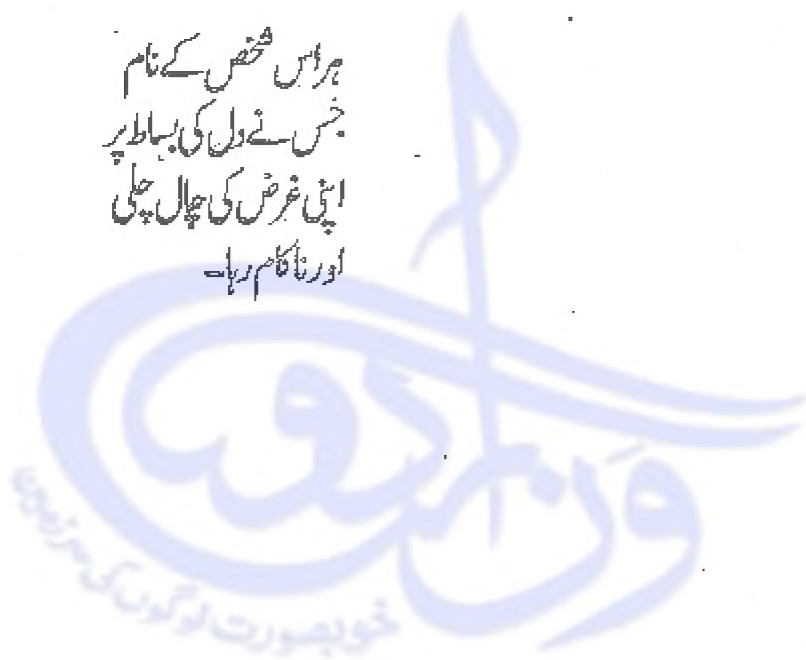 ہر اس شخص کے نام
جس نے دل کی بساط پر
اپنی غرض کی چال چلی
اور ناکام رہا۔
ون اردو
خوبصورت لوگوں کی سرزمین